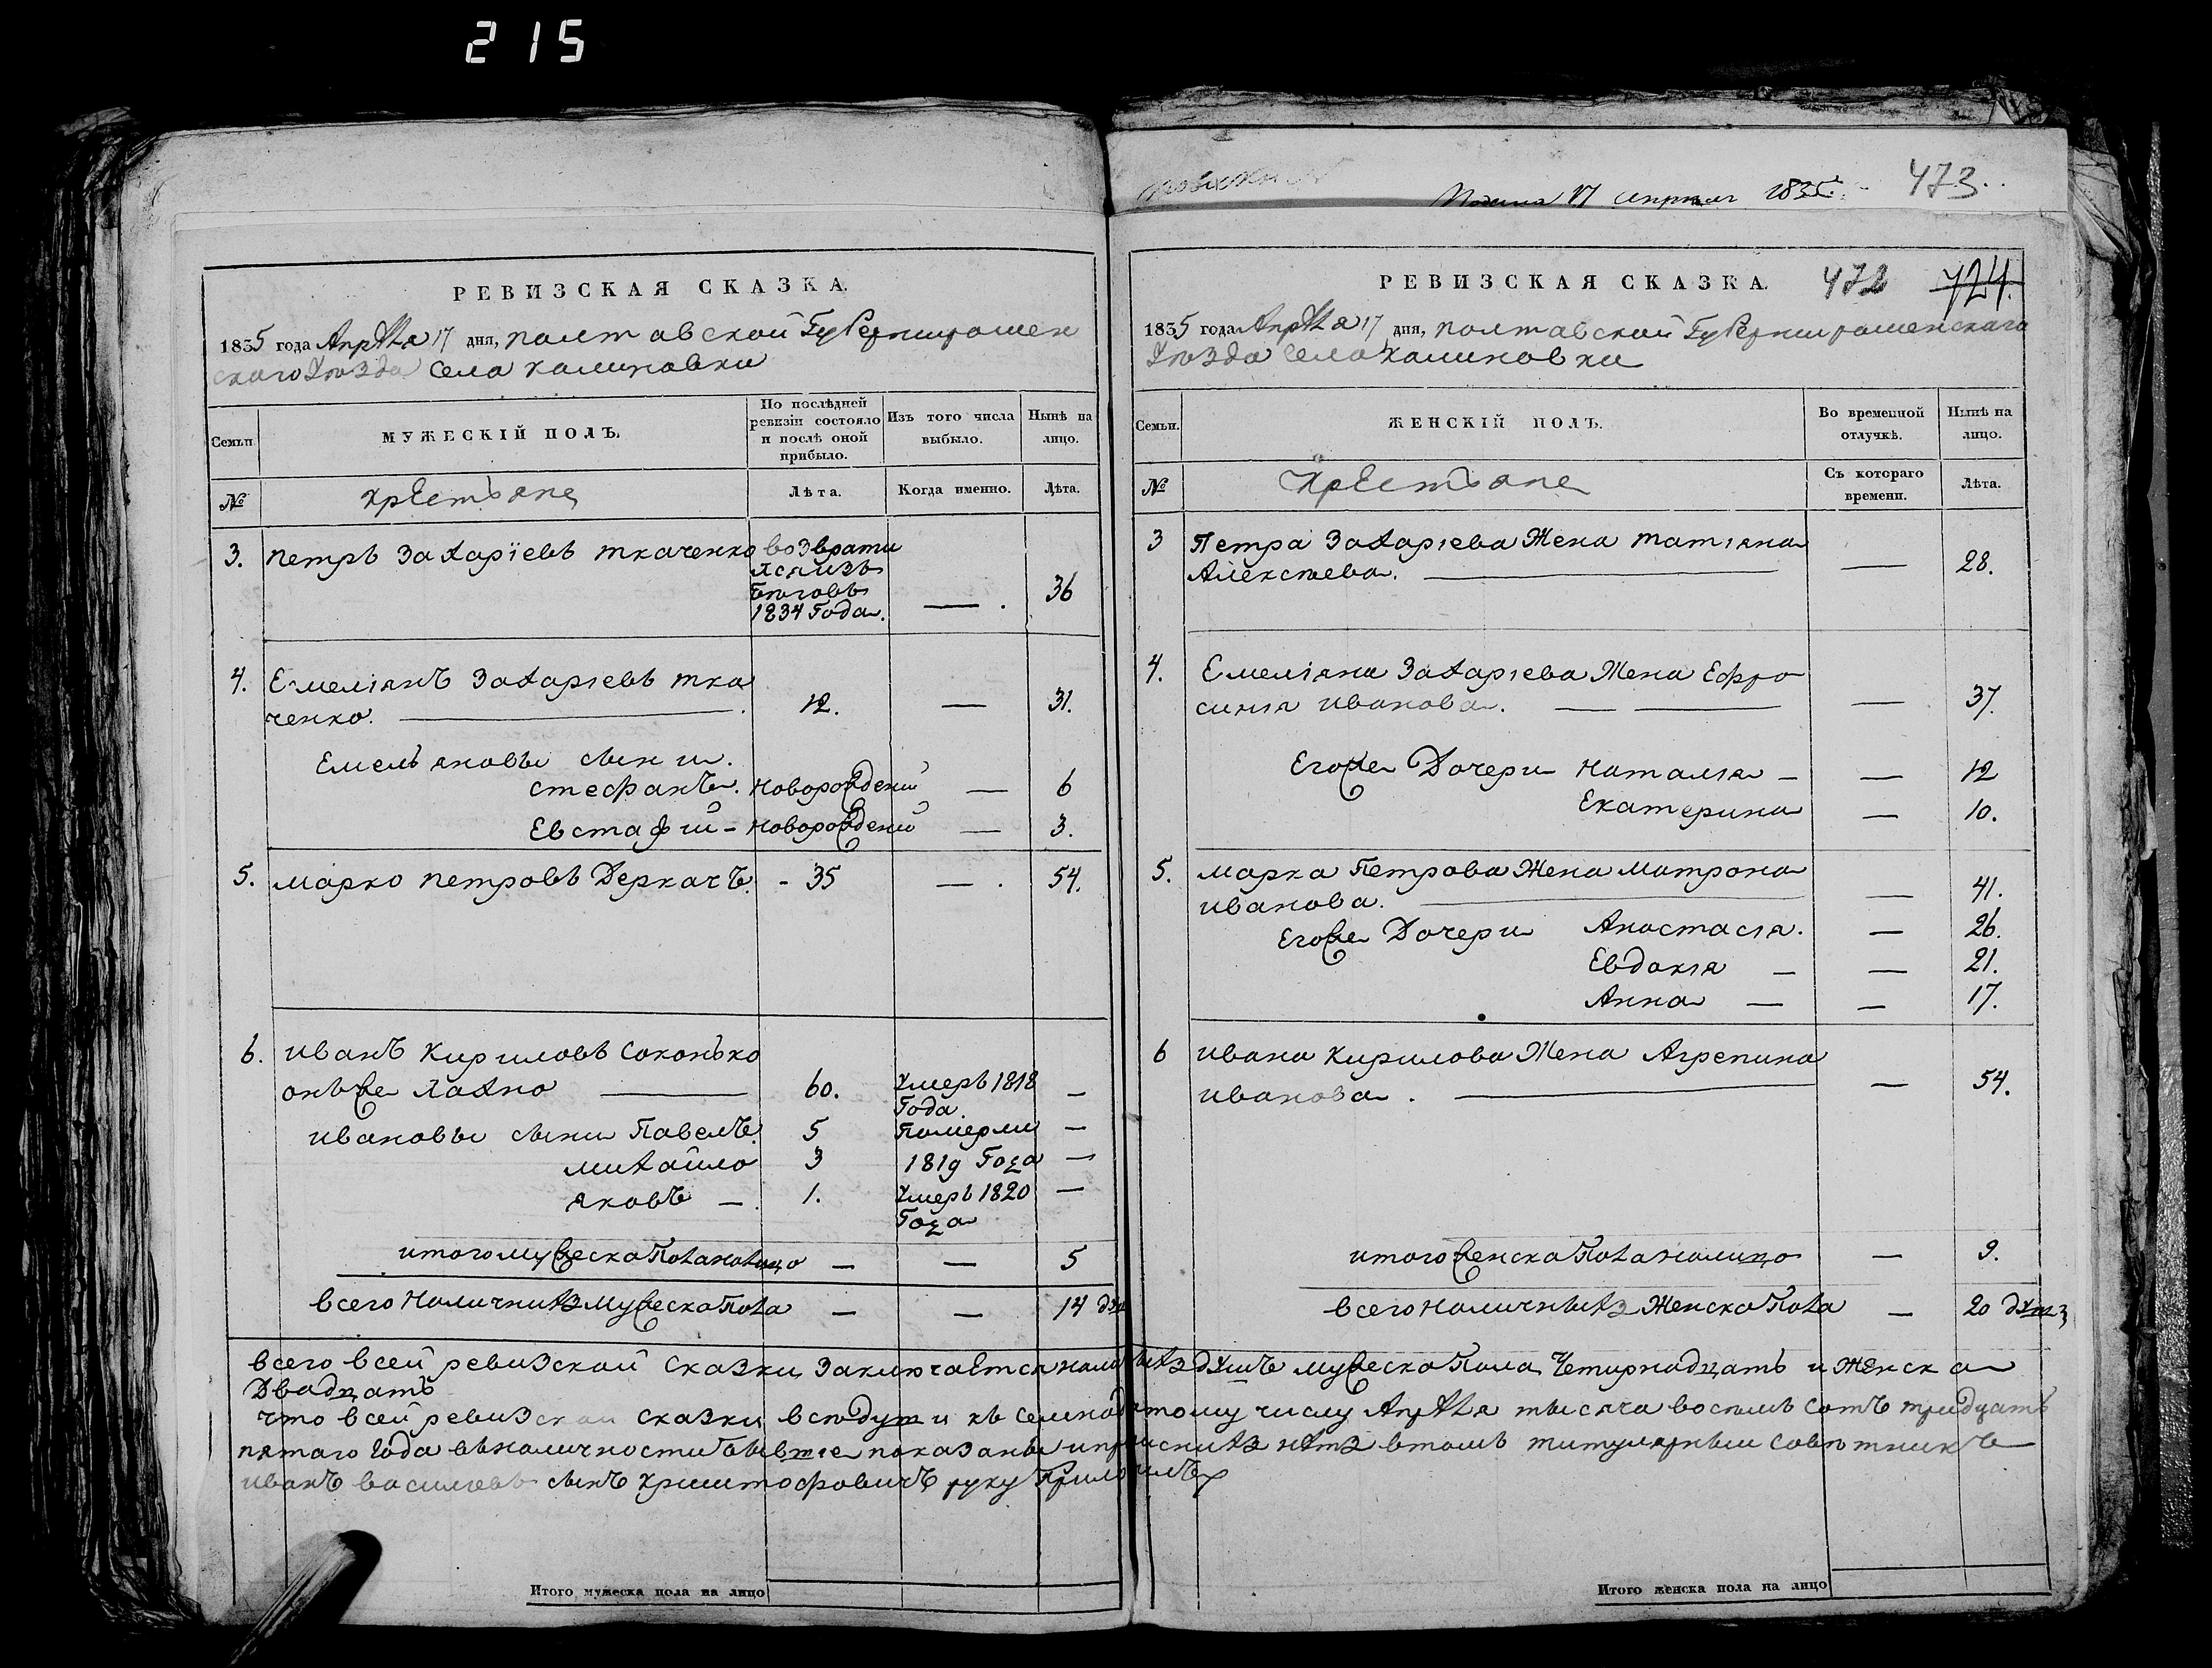 215
473.
РЕВИЗСКАЯ СКАЗКА.
1835 года Апреля 17 дня, полтавской Губернии ромен
скаго Уѣзда села калиновки
Семьи
МУЖЕСКІЙ ПОЛЪ.
По послѣдней ревизіи состояло и послѣ оной прибыло.
Изъ того числа выбыло.
Нынѣ на лицо.
№
крестьяне
Лѣта.
Когда именно.
Лѣта.
3. петръ Захаріевъ ткаченко возврати
лся изъ
бѣговъ
1834 Года. — . 36
4. Емеліянъ Захаріевъ тка
ченко. — 12. — 31.
Емельяновы сыни.
стефанъ. новорожденй — 6
Евстафий - новорожденй — 3.
5. марко петровъ Деркачъ. - 35 — . 54.
6. иванъ Кириловъ Соконько
онъ же Лахно — 60. Умеръ 1818 —
Года.
ивановы сыни Павелъ 5 Померли —
михайло 3 1819 Года —
яковъ — . 1. Умеръ 1820 —
Года
итого мужеска Пола налицо — — 5
всего Наличнихъ Мужеска Пола — — 14 дУ
РЕВИЗСКАЯ СКАЗКА. 472 724.
1835 года Апреля 17 дня, полтавской Губернии роменскаго
Уѣзда села калиновки
Семьи.
ЖЕНСКІЙ ПОЛЪ.
Во временной отлучкѣ.
Нынѣ на лицо.
№
Крестьяне
Съ котораго времени.
Лѣта.
3 Петра Захаріева Жена татіяна
Алексѣева. — — 28.
4. Емеліяна Захаріева Жена Ефро
синія иванова. — — — 37.
Егоже Дочери наталія — — 12
Екатерина — 10.
5. марка Петрова Жена матрона
иванова. — — 41.
Егоже Дочери Анастасія. — 26.
Евдокія — — 21.
Анна — — 17.
6 ивана Кирилова Жена Агрепина
иванова. — — 54.
итого женска Пола налицо — 9.
всего наличныхъ Женска Пола — 20 душъ
всего всей ревизской Сказки Заключается наличныхъ душъ мужеска Пола Четирнадцать и Женска
Двадцать
что всей ревизской сказки всѣ души къ семнадцатому числу Апреля тысяча восемь сотъ тридцать
пятаго Года въ наличности бывшие показаны и прописнихъ нѣтъ втомъ титулярный совѣтникъ
иванъ василиевъ сынъ христофовичъ руку Приложилъ
Итого мужеска пола на лицо
Итого женска пола на лицо